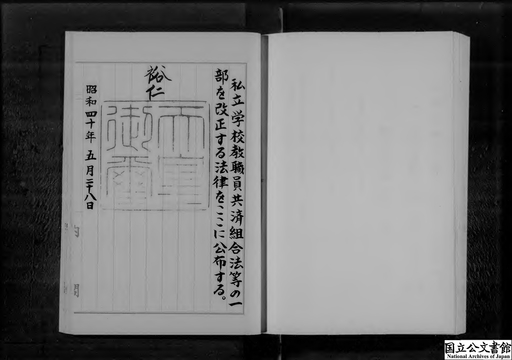 私立学校教職員共済組合法等の一
部を改正する法律をここに公布する。
裕仁
天皇御璽
昭和四十年五月二十八日
国立公文書館
National Archives of Japan